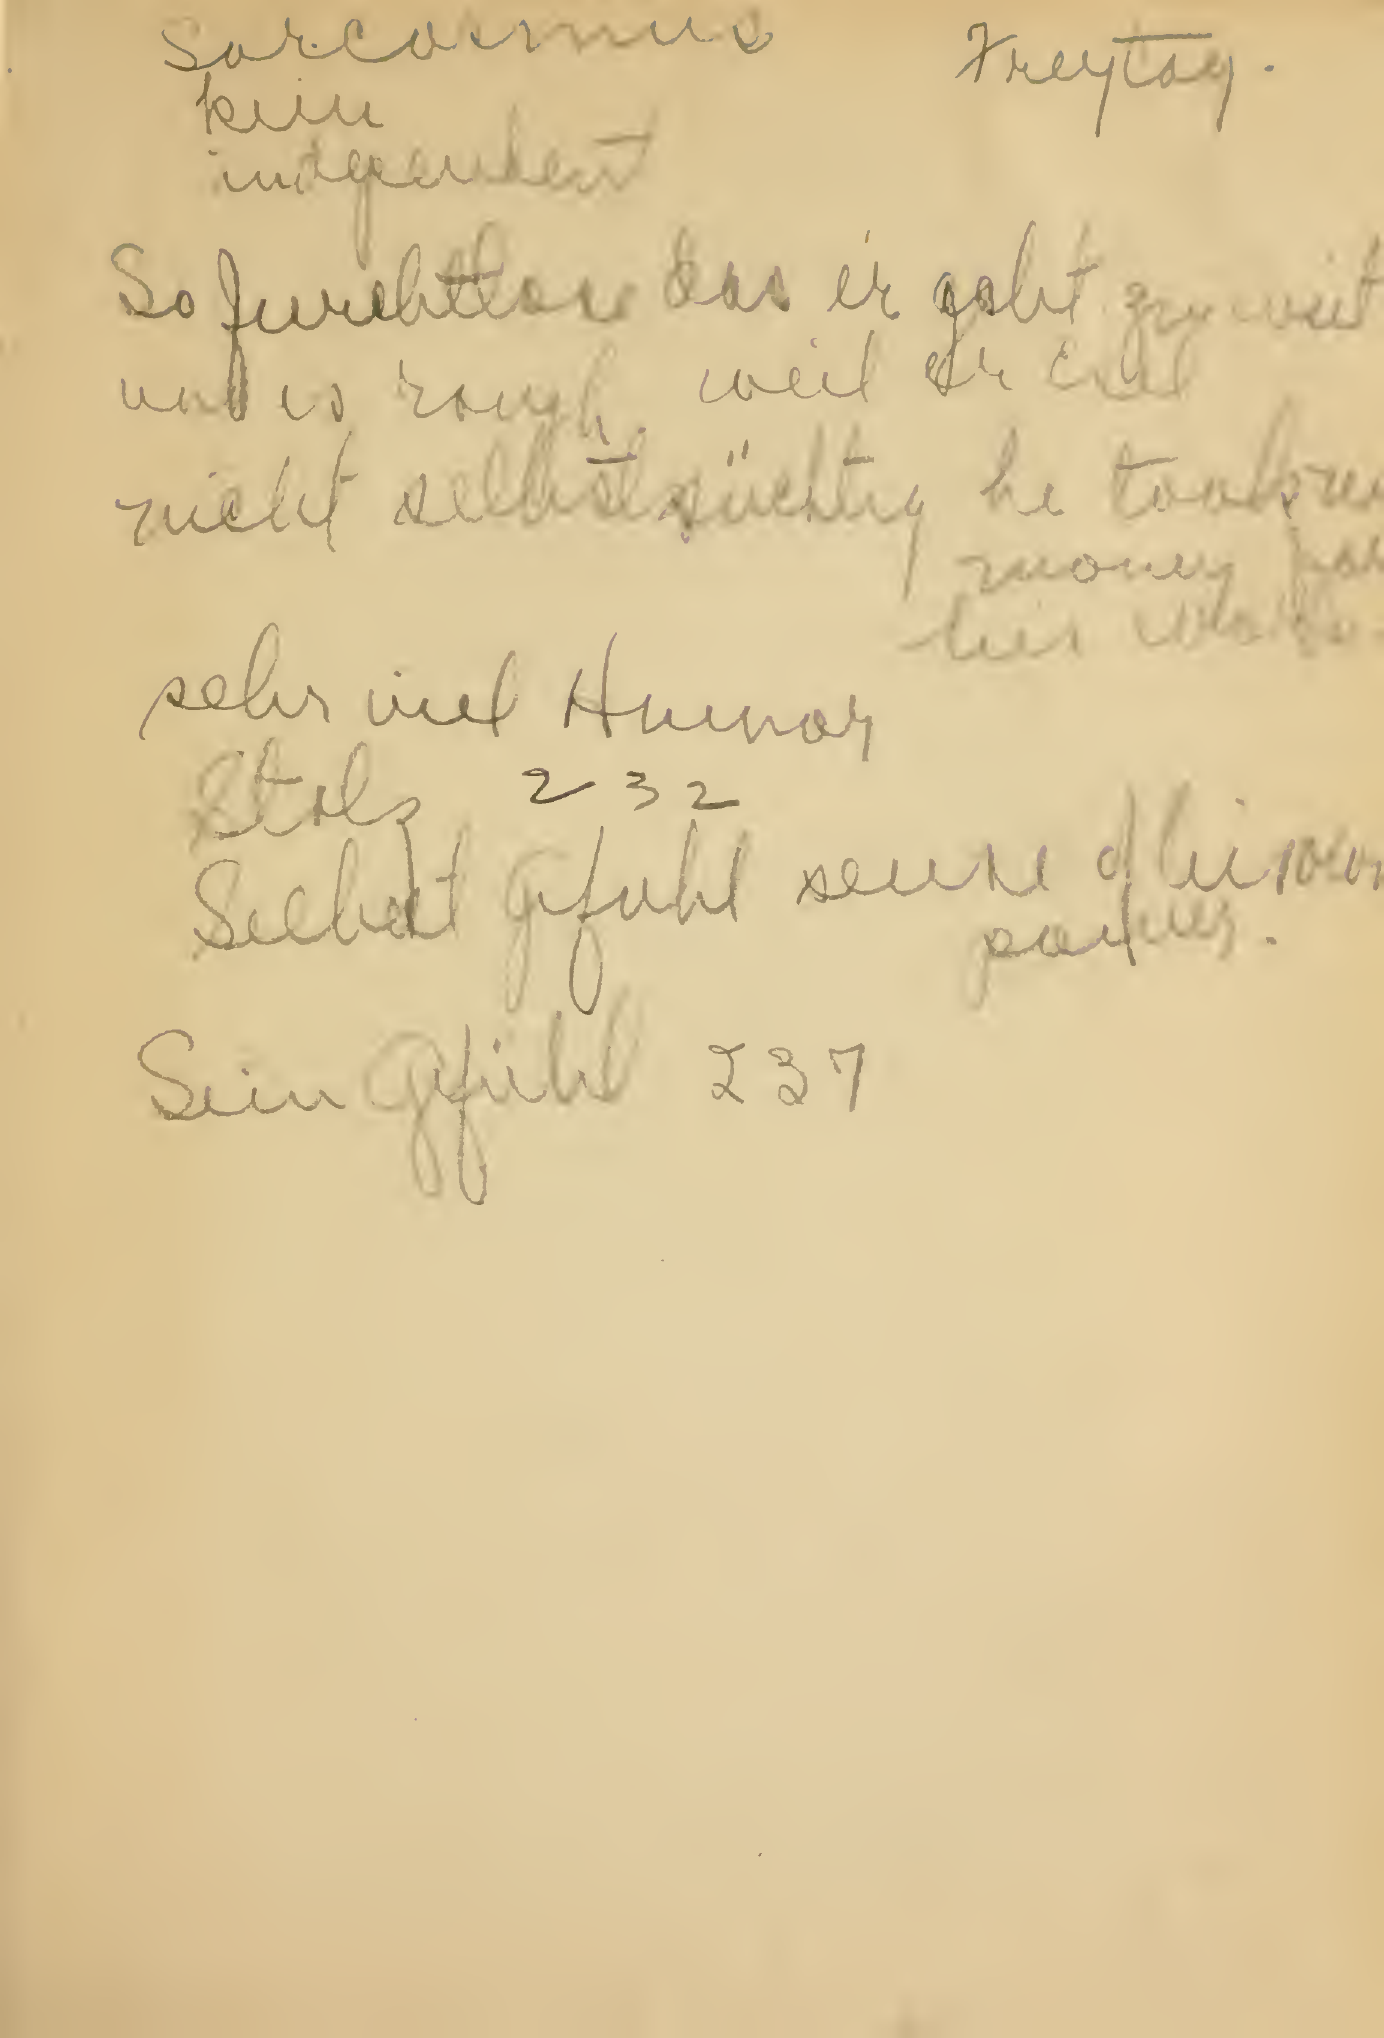 Sarcasmus Freytag.
kein
independent
So furchtbar das er geht zu weit
und is rough. weil er
nicht selbstsüchtig he took
money for
his
sehr viel Humor
Stolz 232
Selbst Gfuhl sense of his own
powers.
Sein Gfühl 237